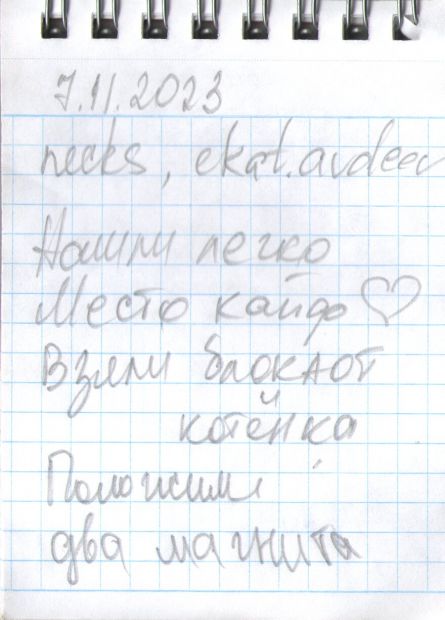 7.11.2023
necks, ekat.avdeev
Нашли легко
Место кайфо ♡
Взяли блокнот
котёнка
Положили
два магнита